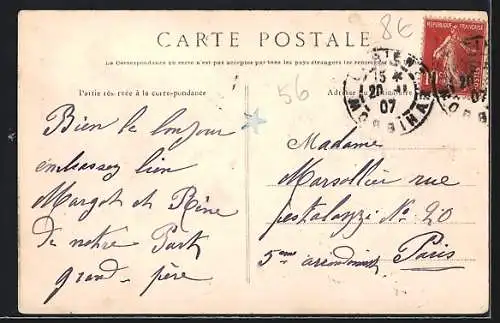 8€
CARTE POSTALE
La Correspondance au recto n'est pas acceptée par tous les pays étrangers (se renseigner
Partie réservée à la correspondance
Adresse
56
REPUBLIQUE FRANÇAISE
10
15 *
20
07
MORBIHAN
20
07
Bien le bonjour
embrassez bien
Margot et Réne
De notre Part
grand-père
Madame
Marsollier rue
pestalozzi No 20
5eme arrondisment Paris